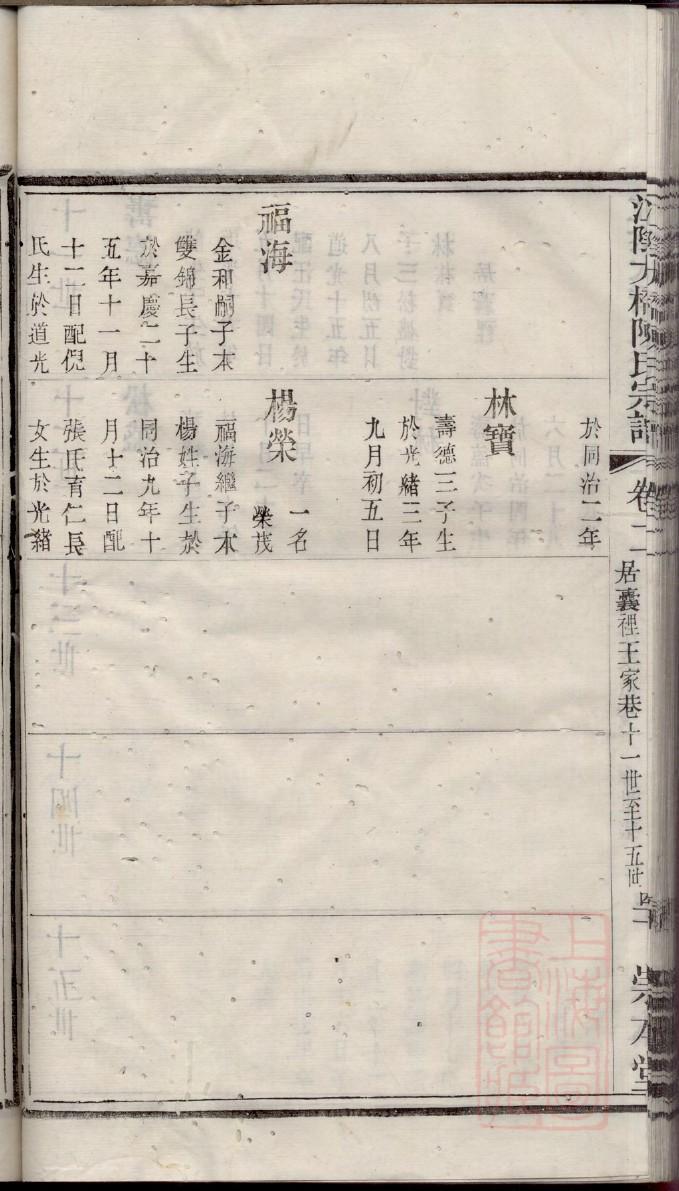 江陰九橋陳氏宗譜
卷二
居囊裡王家巷十一世至十五世
崇本堂
福海
金和嗣子本
雙錦長子生
於嘉慶二十
五年十一月
十二日配倪
氏生於道光
於同治二年
林寶
壽德三子生
於光緒三年
九月初五日
楊榮
一名
榮茂
福海繼子本
楊姓子生於
同治九年十
月十二日配
張氏育仁長
女生於光緒
上海圖書館藏